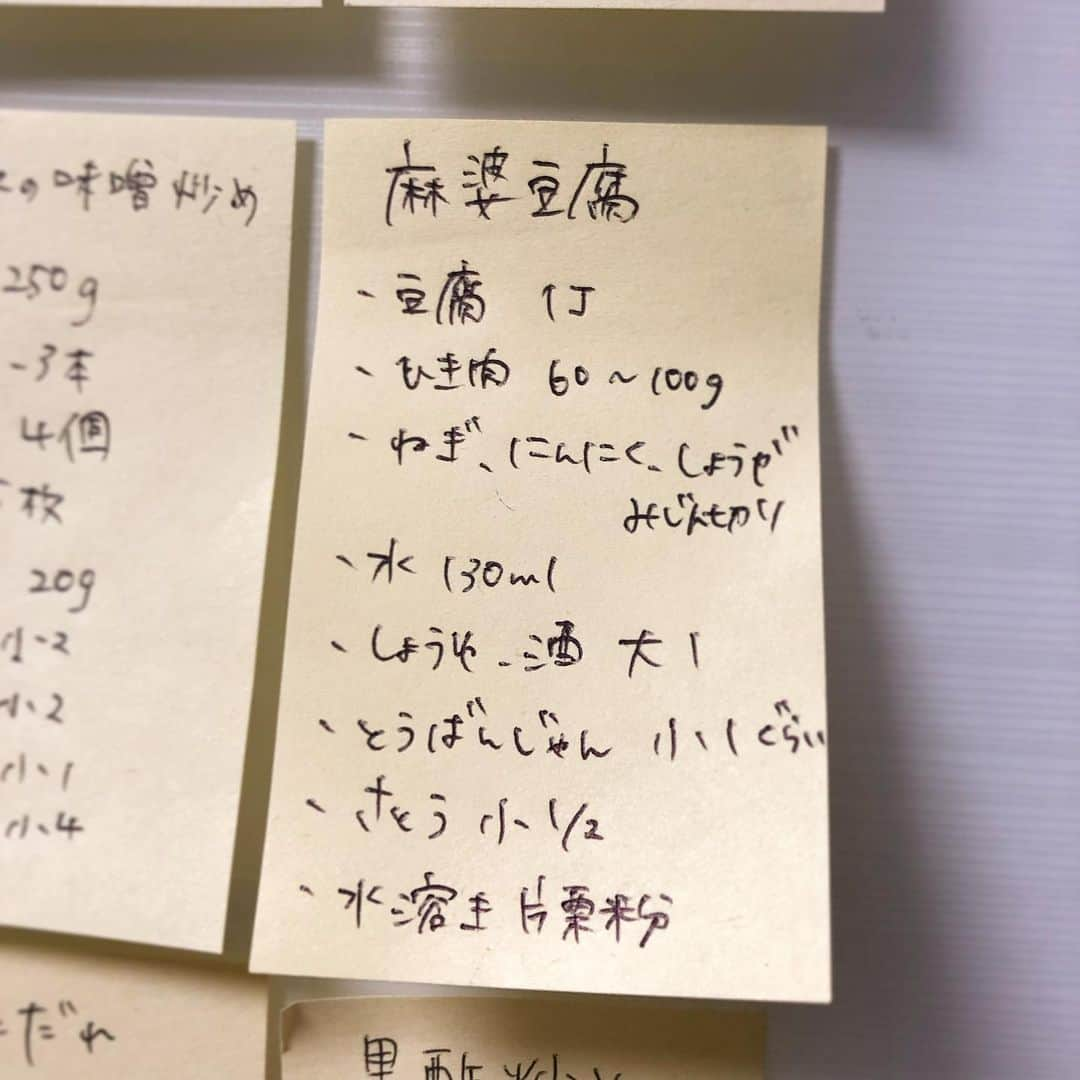 の味噌炒め
250g
-3本
4個
枚
20g
小2
小2
小1
小4
麻婆豆腐
・豆腐 1丁
・ひき肉 60〜100g
・ねぎ、にんにく、しょうが
みじん切り
・水 130ml
・しょうゆ、酒 大1
・とうばんじゃん 小1ぐらい
・さとう 小1/2
・水溶き片栗粉
だれ
黒酢炒め